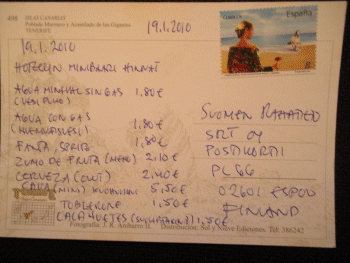 898 ISLAS CANARIAS
Poblado Marinero y Acantilado de los Gigantes
TENERIFE
19.1.2010
España
19.1.2010
HOTELLIN MINIBAARI HINNAT
AGUA MINERAL SIN GAS 1,80€
(VESI PULLO)
AGUA CON GAS 1,80€
FANTA, SPRITE 1,80€
ZUMO DE FRUTA (MEHU) 2,10€
CERVEZA (OLUT) 2,40€
CAVA (MINI) KUOHUVIINI 5,50€
TOBLERONE 1,50€
CACAHUETES 1,50€
SUOMEN RAHATIETO
SRT OY
POSTIKORTTI
PL 66
02601 ESPOO
FINLAND
Fotografía: J. R. Distribución: Sol y Nieve Ediciones. Tel: 386242